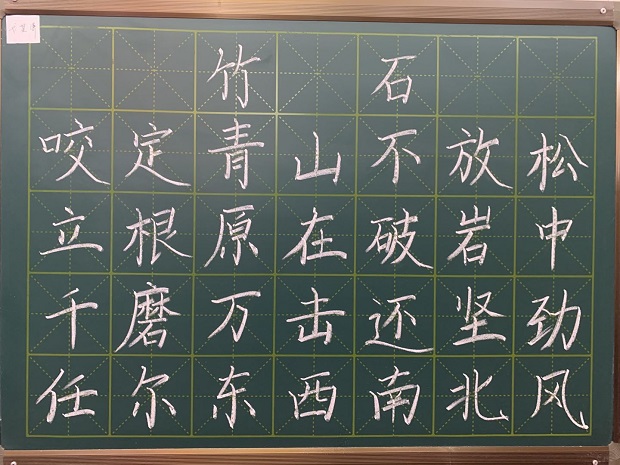 竹石
咬定青山不放松
立根原在破岩中
千磨万击还坚劲
任尔东西南北风